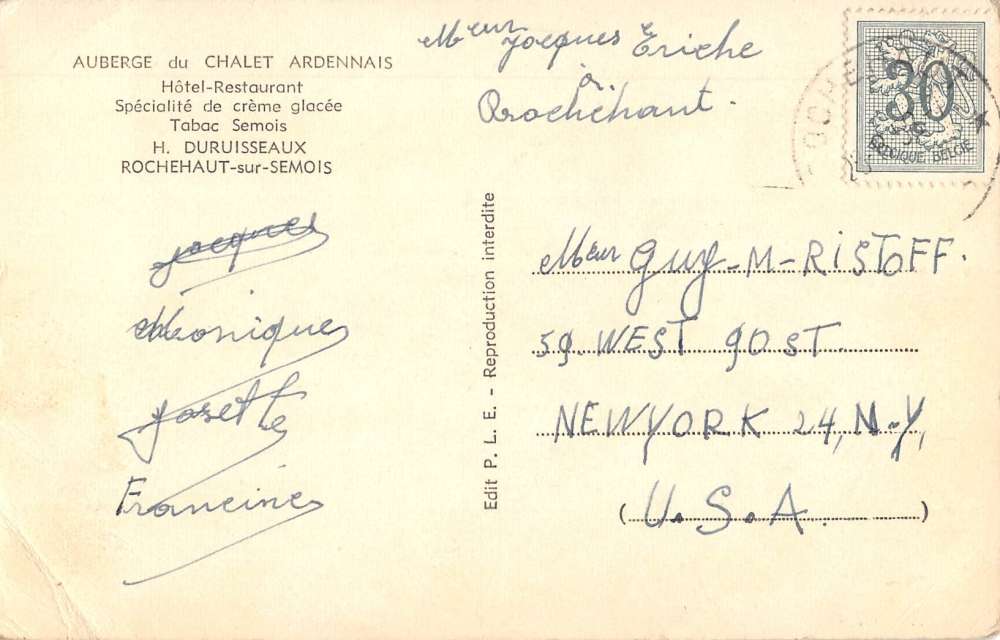 AUBERGE du CHALET ARDENNAIS
Hôtel-Restaurant
Spécialité de crème glacée
Tabac Semois
H. DURUISSEAUX
ROCHEHAUT-sur-SEMOIS
Meur Jacques Eriche
à
Rochehaut.
30
BELGIQUE BELGIE
Jacques
Monique
Josette
Francine
Edit P. L. E. - Reproduction interdite
Meur Guy-M-RISTOFF.
59. WEST 90 ST.
NEW YORK 24, N-Y,
(U.S.A.)